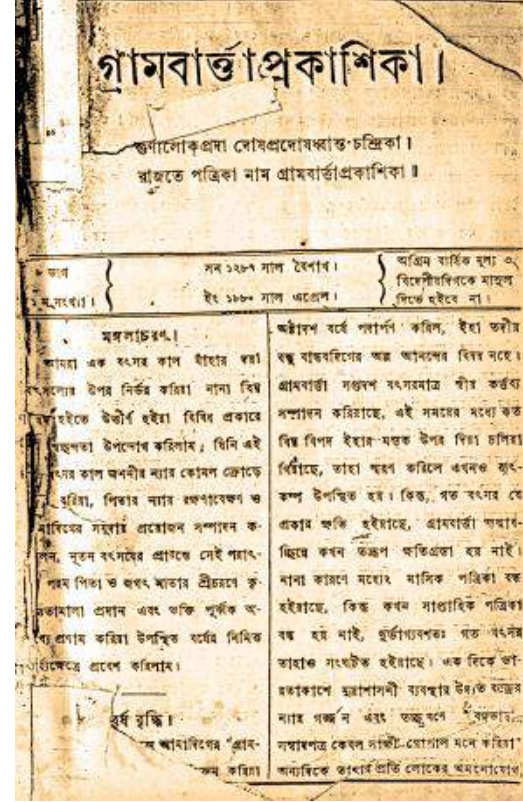 গ্রামবার্ত্তাপ্রকাশিকা।
গুণালোকপ্রদা দোষপ্রদোষধ্বান্ত-চন্দ্রিকা।
রাজতে পত্রিকা নাম গ্রামবার্ত্তাপ্রকাশিকা॥
ভাগ
সংখ্যা।
সন ১২৮৭ সাল বৈশাখ।
ইং ১৮৮০ সাল এপ্রেল।
অগ্রিম বার্ষিক মূল্য ৩
বিদেশীয়দিগকে মাসুল
দিতে হইবে না।
মঙ্গলাচরণ।
আমরা এক বৎসর কাল যাঁহার দয়া
উপর নির্ভর করিয়া নানা বিঘ্ন
হইতে উত্তীর্ণ হইয়া বিবিধ প্রকারে
উপভোগ করিলাম; যিনি এই
কাল জননীর ন্যায় কোমল ক্রোড়ে
করিয়া, পিতার ন্যায় রক্ষণাবেক্ষণ ও
প্রয়োজন সম্পাদন ক-
নূতন বৎসরের প্রারম্ভে সেই পরাৎ-
পরম পিতা ও জগৎ মাতার শ্রীচরণে কৃ-
প্রদান এবং ভক্তি পূর্ব্বক অ-
প্রণাম করিয়া উপস্থিত বর্ষের নিমিত্ত
প্রবেশ করিলাম।
বর্ষ বৃদ্ধি।
আমাদিগের "গ্রাম-
করিয়া
অষ্টাদশ বর্ষে পদার্পণ করিল, ইহা তদীয়
বন্ধু বান্ধবদিগের অল্প আনন্দের বিষয় নহে।
গ্রামবার্ত্তা সপ্তদশ বৎসরমাত্র স্বীয় কর্ত্তব্য
সম্পাদন করিয়াছে, এই সময়ের মধ্যে কত
বিঘ্ন বিপদ ইহার মস্তক উপর দিয়া চলিয়া
গিয়াছে, তাহা স্মরণ করিলে এখনও হৃৎ-
কম্প উপস্থিত হয়। কিন্তু, গত বৎসর যে
প্রকার ক্ষতি হইয়াছে, গ্রামবার্ত্তা জন্মাব-
চ্ছিন্নে কখন তদ্রূপ ক্ষতিগ্রস্তা হয় নাই।
নানা কারণে মধ্যে২ মাসিক পত্রিকা বন্ধ
হইয়াছে, কিন্তু কখন সাপ্তাহিক পত্রিকা
বন্ধ হয় নাই, দুর্ভাগ্যবশতঃ গত বৎসর
তাহাও সংঘটিত হইয়াছে। এক দিকে ভা-
রতাকাশে মুদ্রাশাসনী ব্যবস্থার বজ্রের
ন্যায় গর্জ্জন এবং
সম্বাদপত্র কেবল সাক্ষী-গোপাল মনে করিয়া
অন্যদিকে তাহার প্রতি লোকের অমনোযোগ